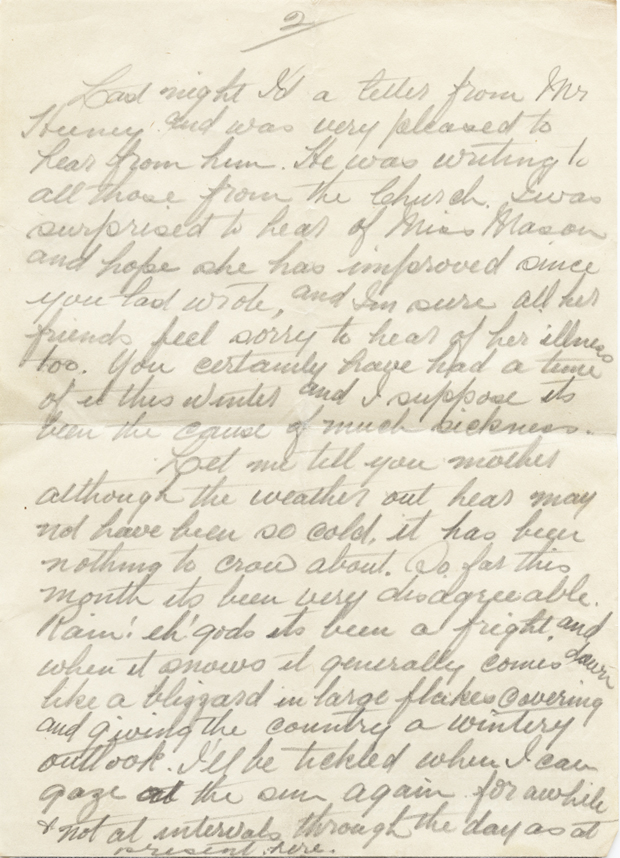 2
Last night I'd a letter from Mr
Heeney. and was very pleased to
hear from him. He was writing to
all those from the Church. I was
surprised to hear of Miss Mason
and hope she has improved since
you last wrote, and Im sure all her
friends feel sorry to hear of her illness
too. You certainly have had a time
of it this winter and I suppose its
been the cause of much sickness.
Let me tell you mother
although the weather out hear may
not have been so cold, it has been
nothing to crow about. So far this
month its been very disagreeable.
Rain! eh' gods its been a fright, and
when it snows it generally comes down
like a blizzard in large flakes covering
and giving the country a wintery
outlook. I'll be tickled when I can
gaze at the sun again for awhile
& not at intervals through the day as at
present here.